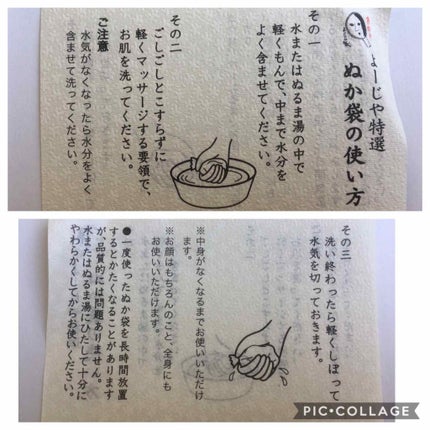 よーじや特選
ぬか袋の使い方
その一
水またはぬるま湯の中で
軽くもんで、中まで水分を
よく含ませてください。
その二
ごしごしとこすらずに
軽くマッサージする要領で、
お肌を洗ってください。
ご注意
水気がなくなったら水分をよく
含ませて洗ってください。
その三
洗い終わったら軽くしぼって
水気を切っておきます。
※中身がなくなるまでお使いいただけ
ます。
※お顔はもちろんのこと、全身にも
お使いいただけます。
●一度使ったぬか袋を長時間放置
するとかたくなることがあります
が、品質的には問題ありません。
水またはぬるま湯にひたして十分に
やわらかくしてからお使いください。
PIC•COLLAGE